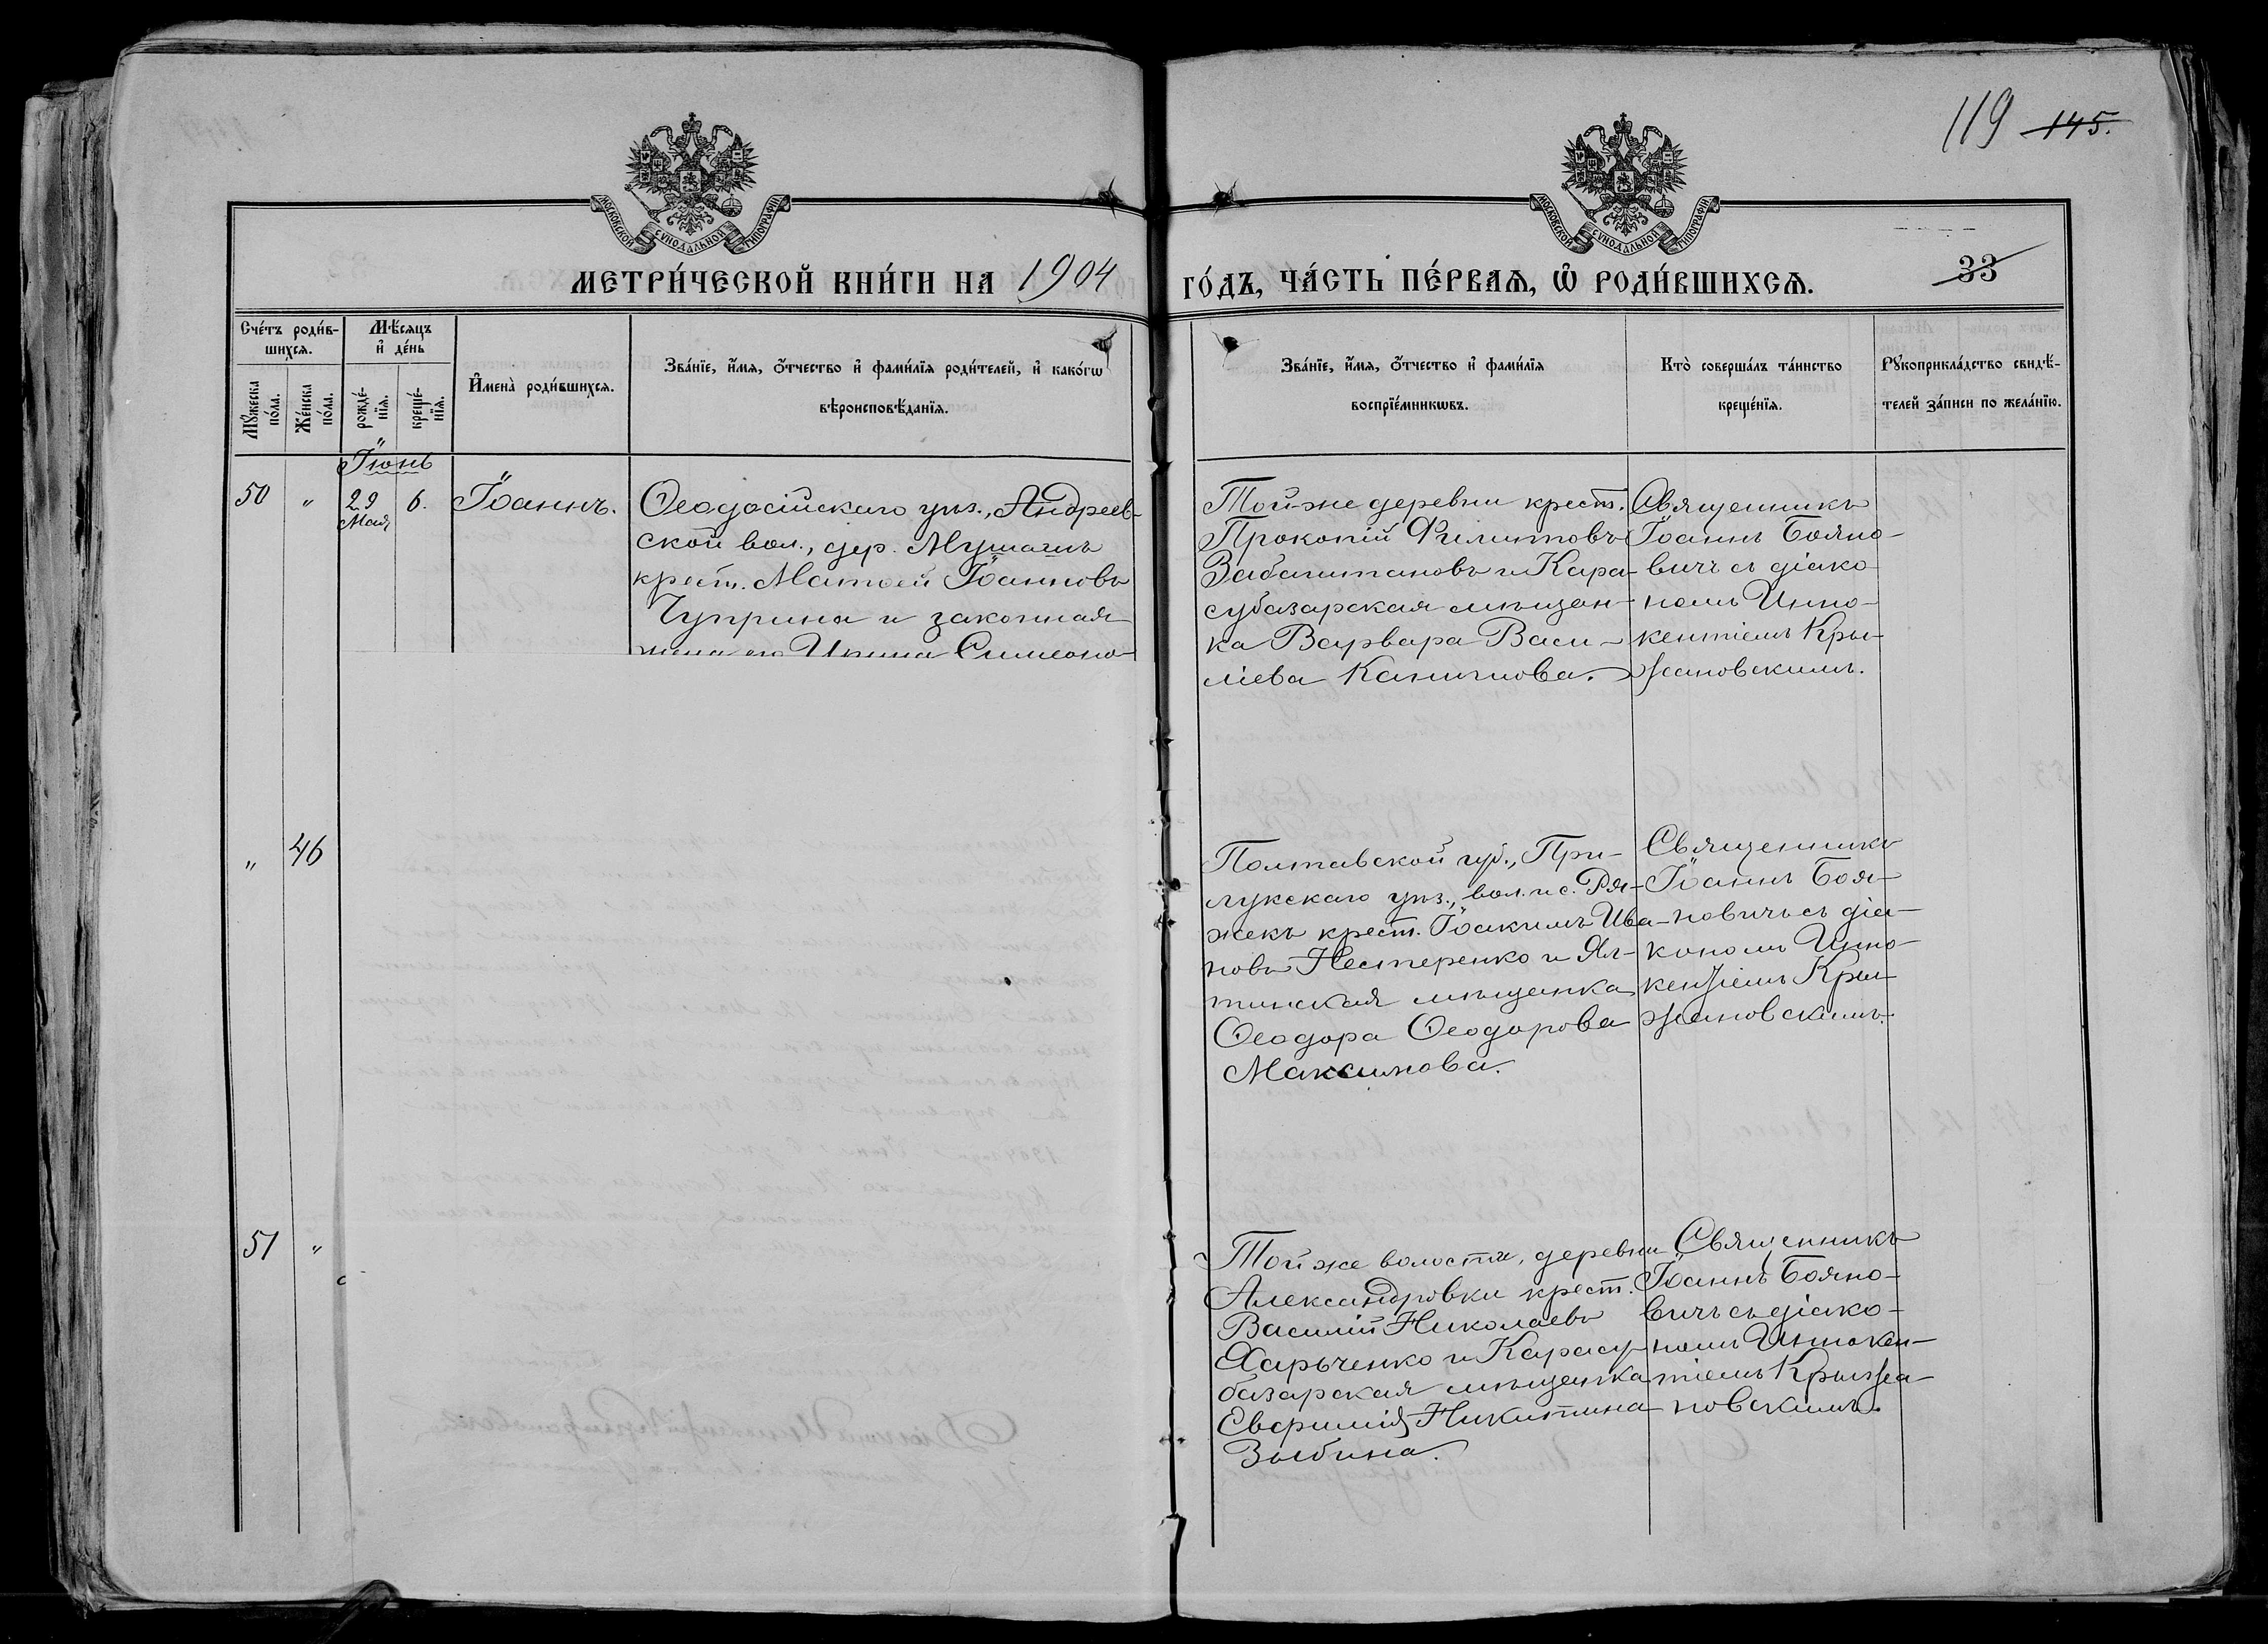 119 145.
МОСКОВСКОЙ СУНОДАЛЬНОЙ ТИПОГРАФІИ
МОСКОВСКОЙ СУНОДАЛЬНОЙ ТИПОГРАФІИ
МЕТРИ́ЧЕСКОЙ КНИ́ГИ НА 1904 ГО́ДЪ, ЧА́СТЬ ПЕ́РВАѦ, Ѽ РОДИ́ВШИХСѦ.
33
Сче́тъ роди́в-
шихсѧ.
Мꙋ́жеска
по́ла.
Же́нска
по́ла.
Мѣ́сѧцъ
и҆ де́нь
рожде́-
нїѧ.
креще́-
нїѧ.
И҆мена̀ роди́вшихсѧ.
Зва́нїе, и҆́мѧ, ѻ҆́тчество и҆ фами́лїѧ роди́телей, и҆ како́гѡ
вѣроисповѣ́данїѧ.
Зва́нїе, и҆́мѧ, ѻ҆́тчество и҆ фами́лїѧ
воспрїе́мникѡвъ.
Кто̀ соверша́лъ та́инство
креще́нїѧ.
Рꙋкоприкла́дство свидѣ́-
телей за́писи по жела́нїю.
Іюнь
50 " 29 6. Іоаннъ.
Мая
Ѳеодосійскаго уѣз., Андреев-
ской вол., дер.
крест. Матѳей Іоанновъ
Чуприна и законная
жена его Ирина Симеоно-
Той-же деревни крест.
Прокопій Филиповъ
и Кара-
субазарская мѣщан-
ка Варвара Васи-
ліева
Священникъ
Іоаннъ Бояно-
вичъ съ діако-
номъ Инно-
кентіемъ Кры-
жановскимъ.
" 46
Полтавской губ., При-
лукскаго уѣз., вол. и с. Ря-
жекъ крест. Іоакимъ Ива-
новъ Нестеренко и Ял-
тинская мѣщанка
Ѳеодора Ѳеодорова
Максимова.
Священникъ
Іоаннъ Боя-
новичъ съ діа-
кономъ Инно-
кентіемъ Кры-
жановскимъ.
51 "
Той же волости, деревни
Александровки крест.
Василій Николаевъ
Харьченко и Карасу-
базарская мѣщанка
Евфимія Никитина
Зыбина.
Священникъ
Іоаннъ Бояно-
вичъ съ діако-
номъ Иннокен-
тіемъ Крыжа-
новскимъ.